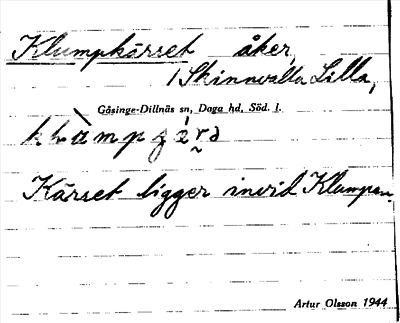 Klumpkärret åker,
/Skinnvalla Lilla,
Gåsinge-Dillnäs sn, Daga hd, Söd. l.
Kärret ligger invid Klumpen.
Artur Olsson 1944